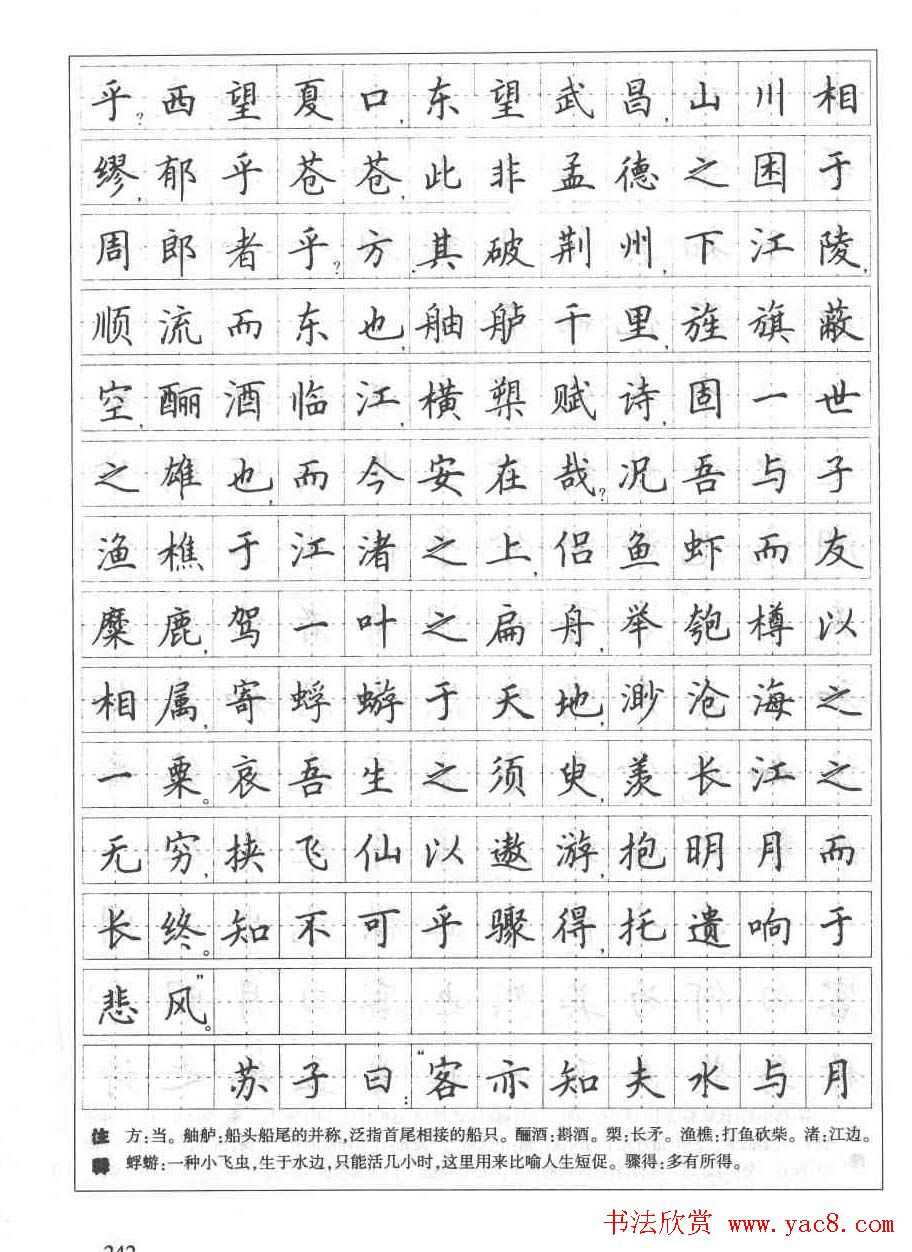 乎?西望夏口,东望武昌,山川相
缪,郁乎苍苍,此非孟德之困于
周郎者乎?方其破荆州,下江陵,
顺流而东也,舳舻千里,旌旗蔽
空,酾酒临江,横槊赋诗,固一世
之雄也,而今安在哉?况吾与子
渔樵于江渚之上,侣鱼虾而友
糜鹿,驾一叶之扁舟,举匏樽以
相属,寄蜉蝣于天地,渺沧海之
一粟。哀吾生之须臾,羡长江之
无穷,挟飞仙以遨游,抱明月而
长终。知不可乎骤得,托遗响于
悲风。”
苏子曰:“客亦知夫水与月
注释 方:当。舳舻:船头船尾的并称,泛指首尾相接的船只。酾酒:斟酒。槊:长矛。渔樵:打鱼砍柴。渚:江边。
蜉蝣:一种小飞虫,生于水边,只能活几小时,这里用来比喻人生短促。骤得:多有所得。
书法欣赏 www.yac8.com